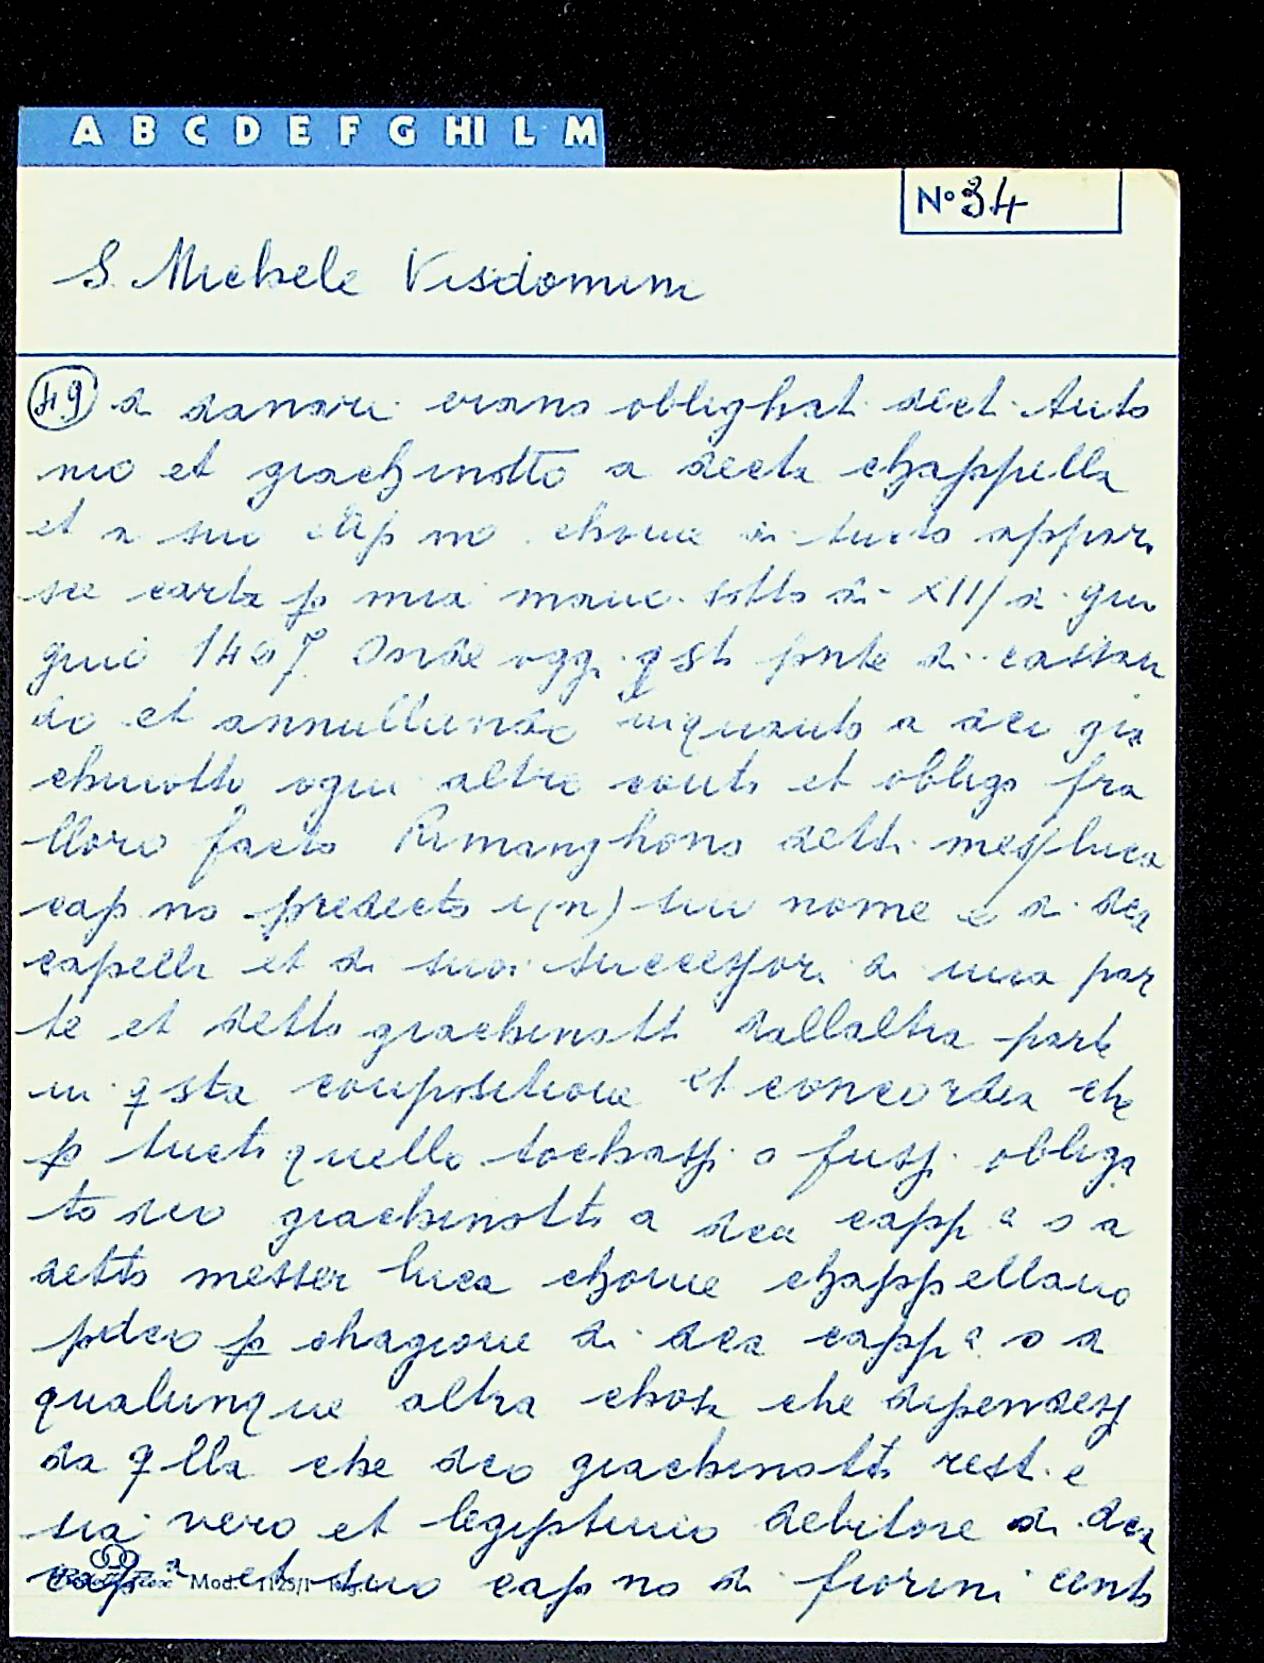 A B C D E F G HI L M
Nº 34
S. Michele Visdomini
49 di danari erano oblighat. dect. Anto
nio et giachinotto a decta chappella
et a suo cap no. chome di tucto appari
sce carta p mia mano. sotto dì XII di giu
gnio 1487 Onde oggi q sti pnte di cassan
do et annullando inquanto a dco gia
chinotto ogni altro conto et obligo fra
lloro facto Rimanghono detti. mess luca
cap no predecto i(n) suo nome e di dca
capella et di suoi successori di una par
te et detto giachinotto dallaltra parte
in q sta compositione et concordia che
p tucto quello tochassi o fussi obliga
to dco giachinotto a dca capp a o a
detto messer luca chome chappellano
pdco p chagione di dca capp a o di
qualunque altra chosa che dipendess
da q lla che dco giachinotto resti e
sia vero et legiptimo debitore di dca
capp a et suo cap no di fiorini cento
Mod. 1125/1